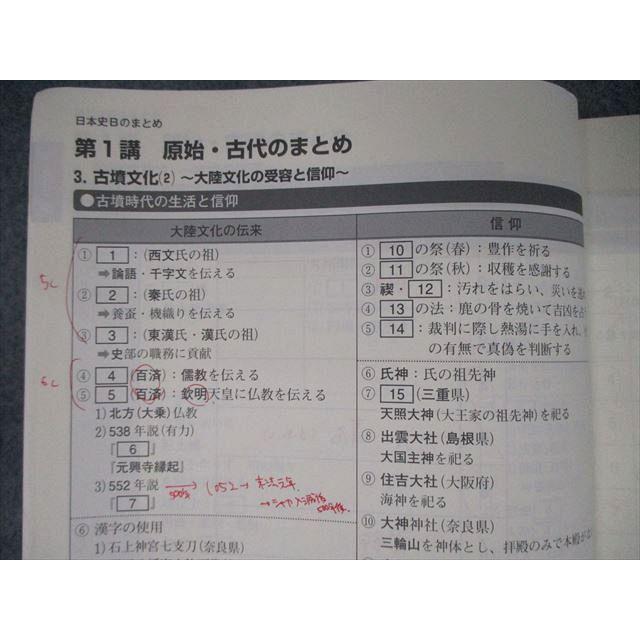 日本史Bのまとめ
第1講 原始・古代のまとめ
3. 古墳文化(2) ～大陸文化の受容と信仰～
●古墳時代の生活と信仰
大陸文化の伝来
① 1 : (西文氏の祖)
➡論語・千字文を伝える
② 2 : (秦氏の祖)
➡養蚕・機織りを伝える
③ 3 : (東漢氏・漢氏の祖)
➡史部の職務に貢献
④ 4 (百済) : 儒教を伝える
⑤ 5 (百済) : 欽明天皇に仏教を伝える
1) 北方(大乗)仏教
2) 538年説(有力)
『 6 』
『元興寺縁起』
3) 552年説
『 7 』
⑥ 漢字の使用
1) 石上神宮七支刀(奈良県)
5c
6c
500年
1052→末法元年
信仰
① 10 の祭(春) : 豊作を祈る
② 11 の祭(秋) : 収穫を感謝する
③ 禊・ 12 : 汚れをはらい、災いを
④ 13 の法 : 鹿の骨を焼いて吉凶を
⑤ 14 : 裁判に際し熱湯に手を入れ、
の有無で真偽を判断する
⑥ 氏神 : 氏の祖先神
⑦ 15 (三重県)
天照大神(大王家の祖先神)を祀る
⑧ 出雲大社(島根県)
大国主神を祀る
⑨ 住吉大社(大阪府)
海神を祀る
⑩ 大神神社(奈良県)
三輪山を神体とし、拝殿のみで本殿が